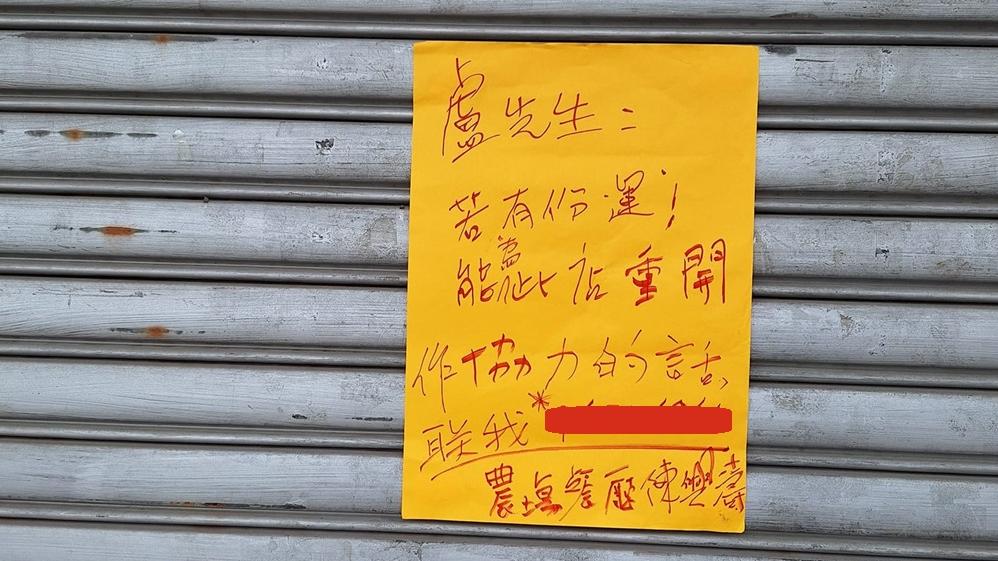 盧先生：
若有份運！
能為此店重開
作協力的話、
联我*
農場餐廳陳興濤